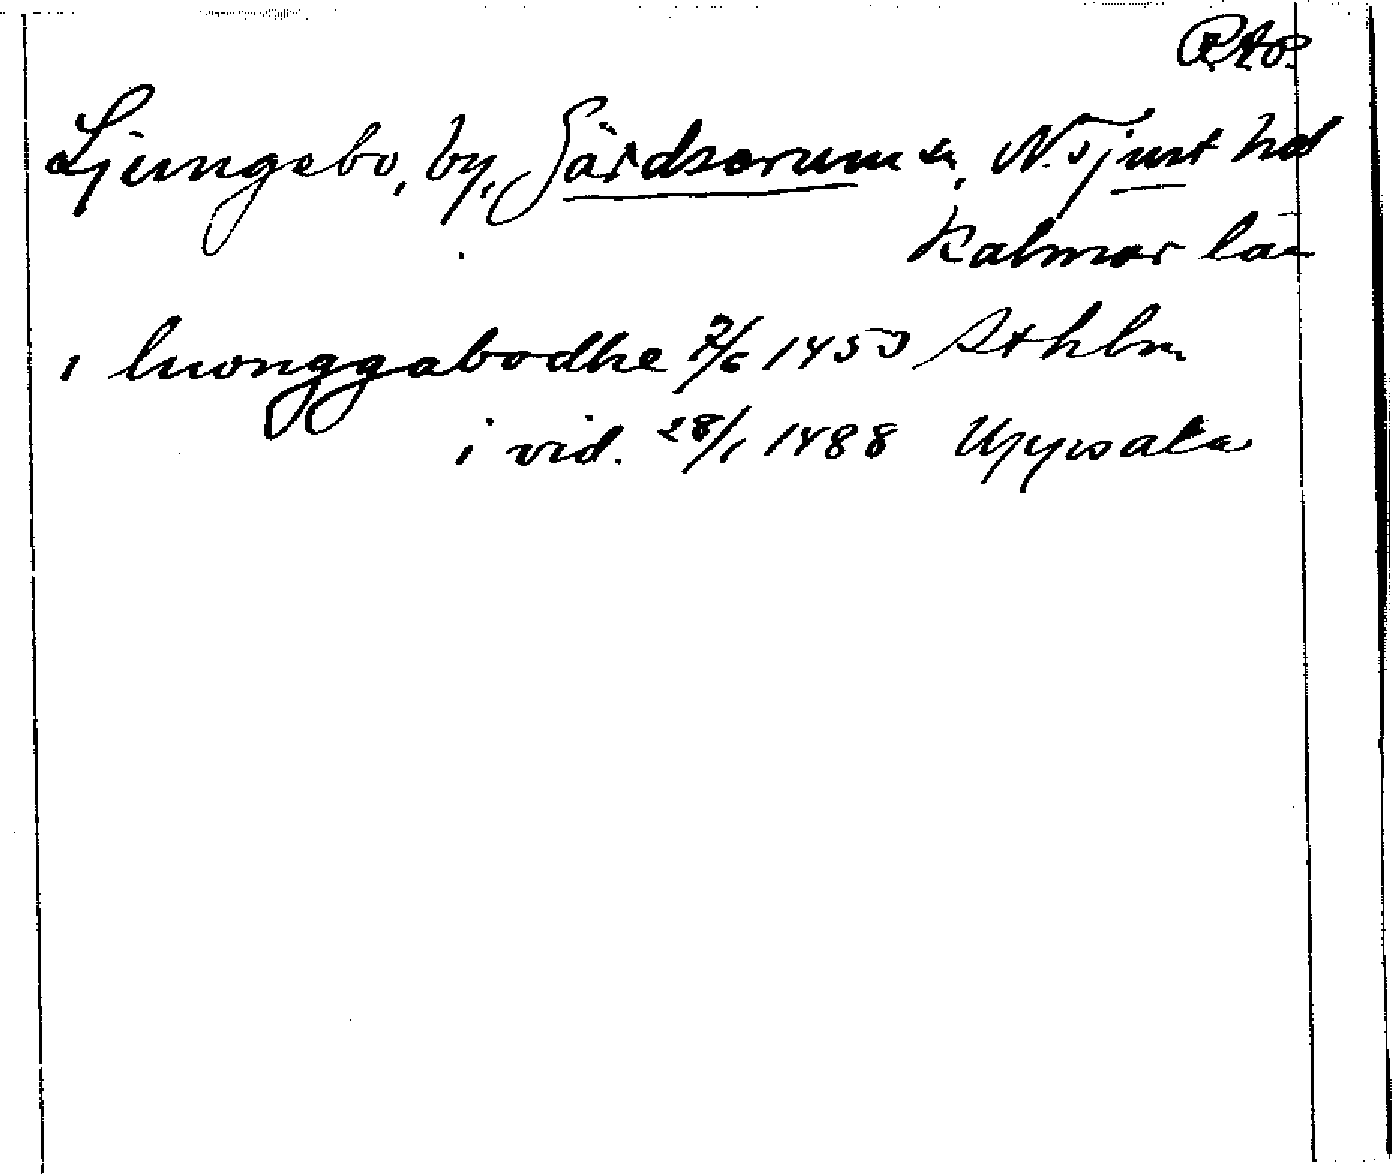 RAP
Ljungebo, by, Gärdserum sn, N. Tjust hd
Kalmar län
i luonggabodhe 7/6 1453 Sthlm
i vid. 28/1 1488 Uppsala